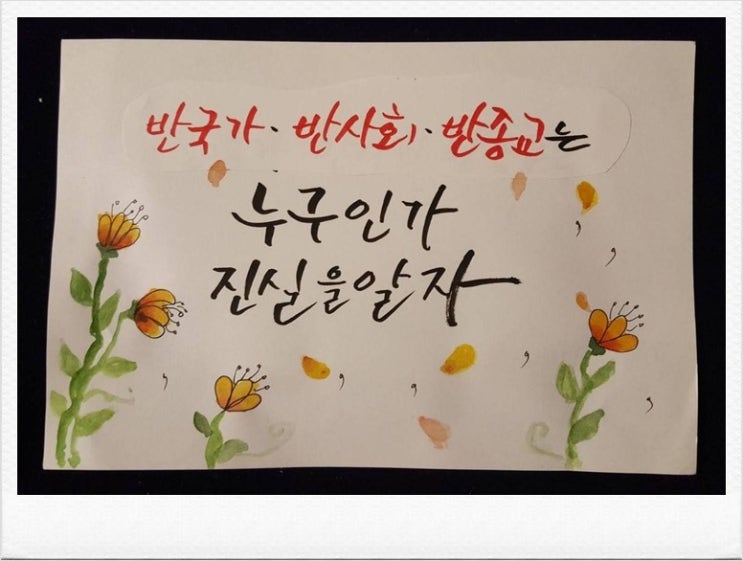 반국가·반사회·반종교는
누구인가
진실을알자